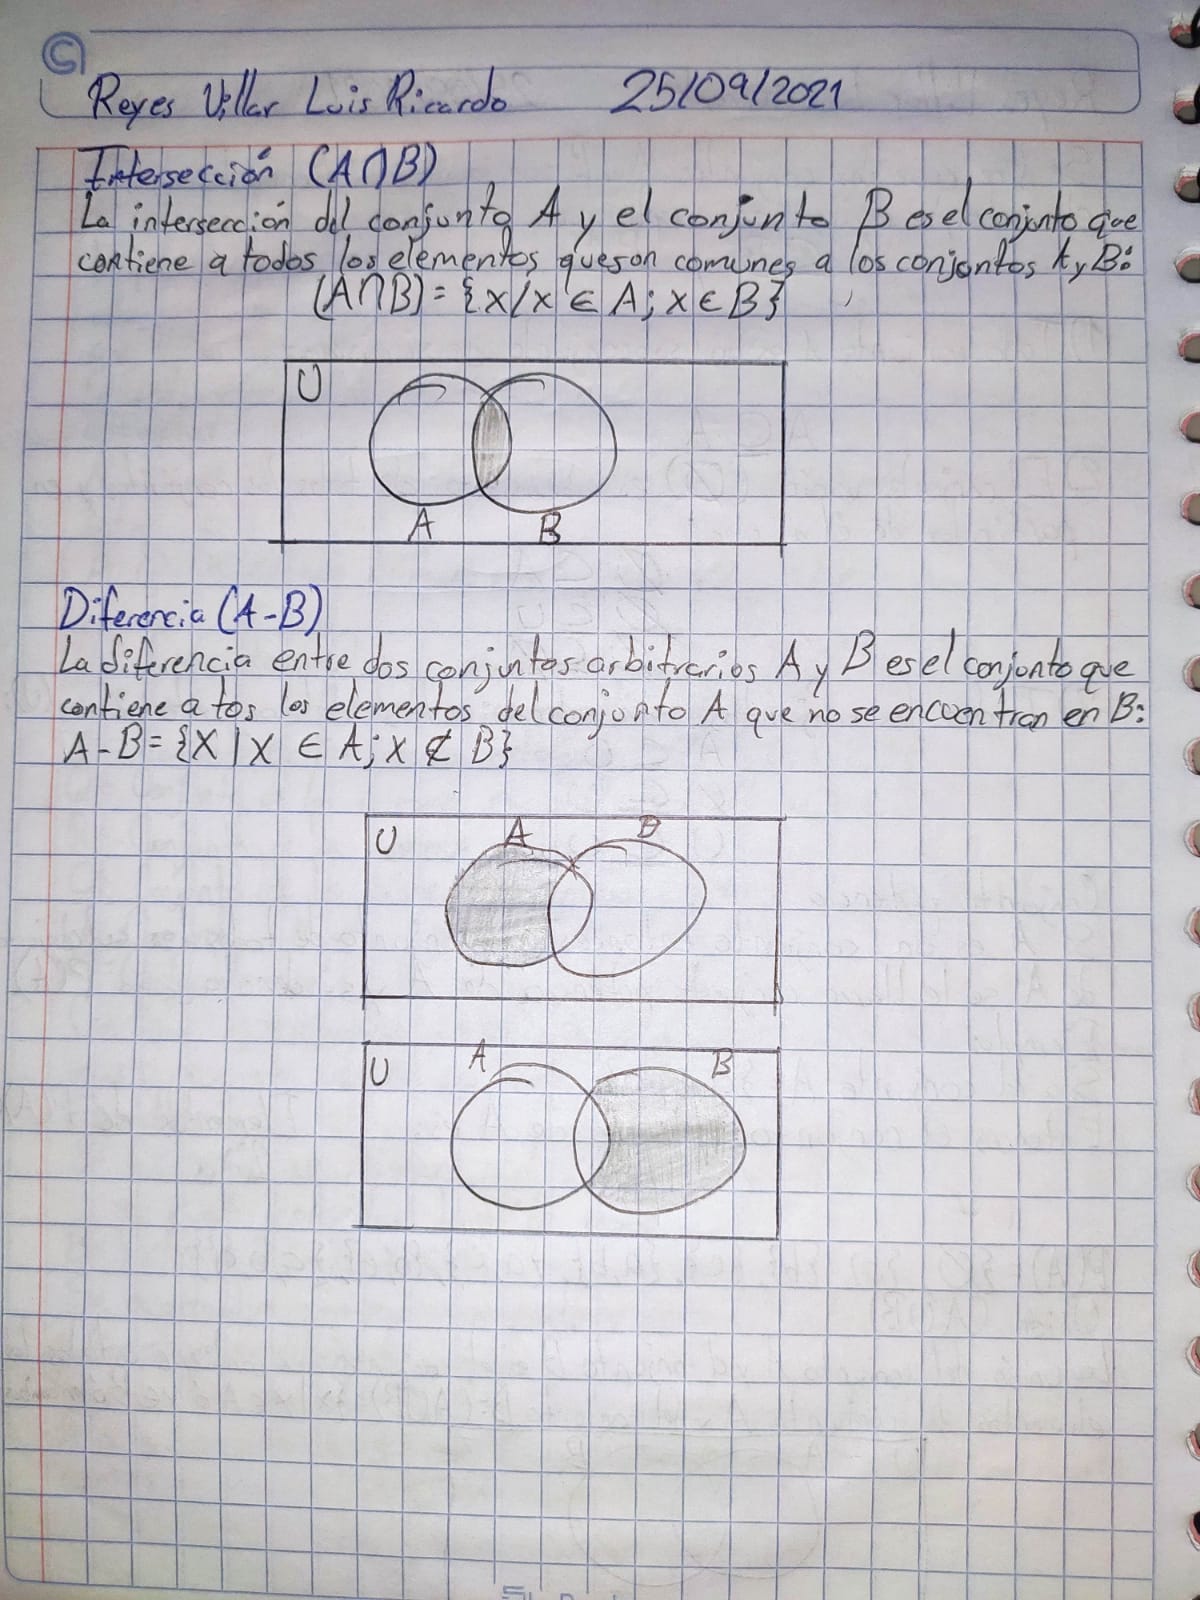 Reyes Villar Luis Ricardo 25/09/2021
Intersección (A∩B)
La intersección del conjunto A y el conjunto B es el conjunto que
contiene a todos los elementos que son comunes a los conjuntos A y B:
(A∩B) = {x/x ∈ A; x ∈ B}
U
A B
Diferencia (A-B)
La diferencia entre dos conjuntos arbitrarios A y B es el conjunto que
contiene a tos los elementos del conjunto A que no se encuentran en B:
A-B = {X | X ∈ A; X ∉ B}
U A B
U A B